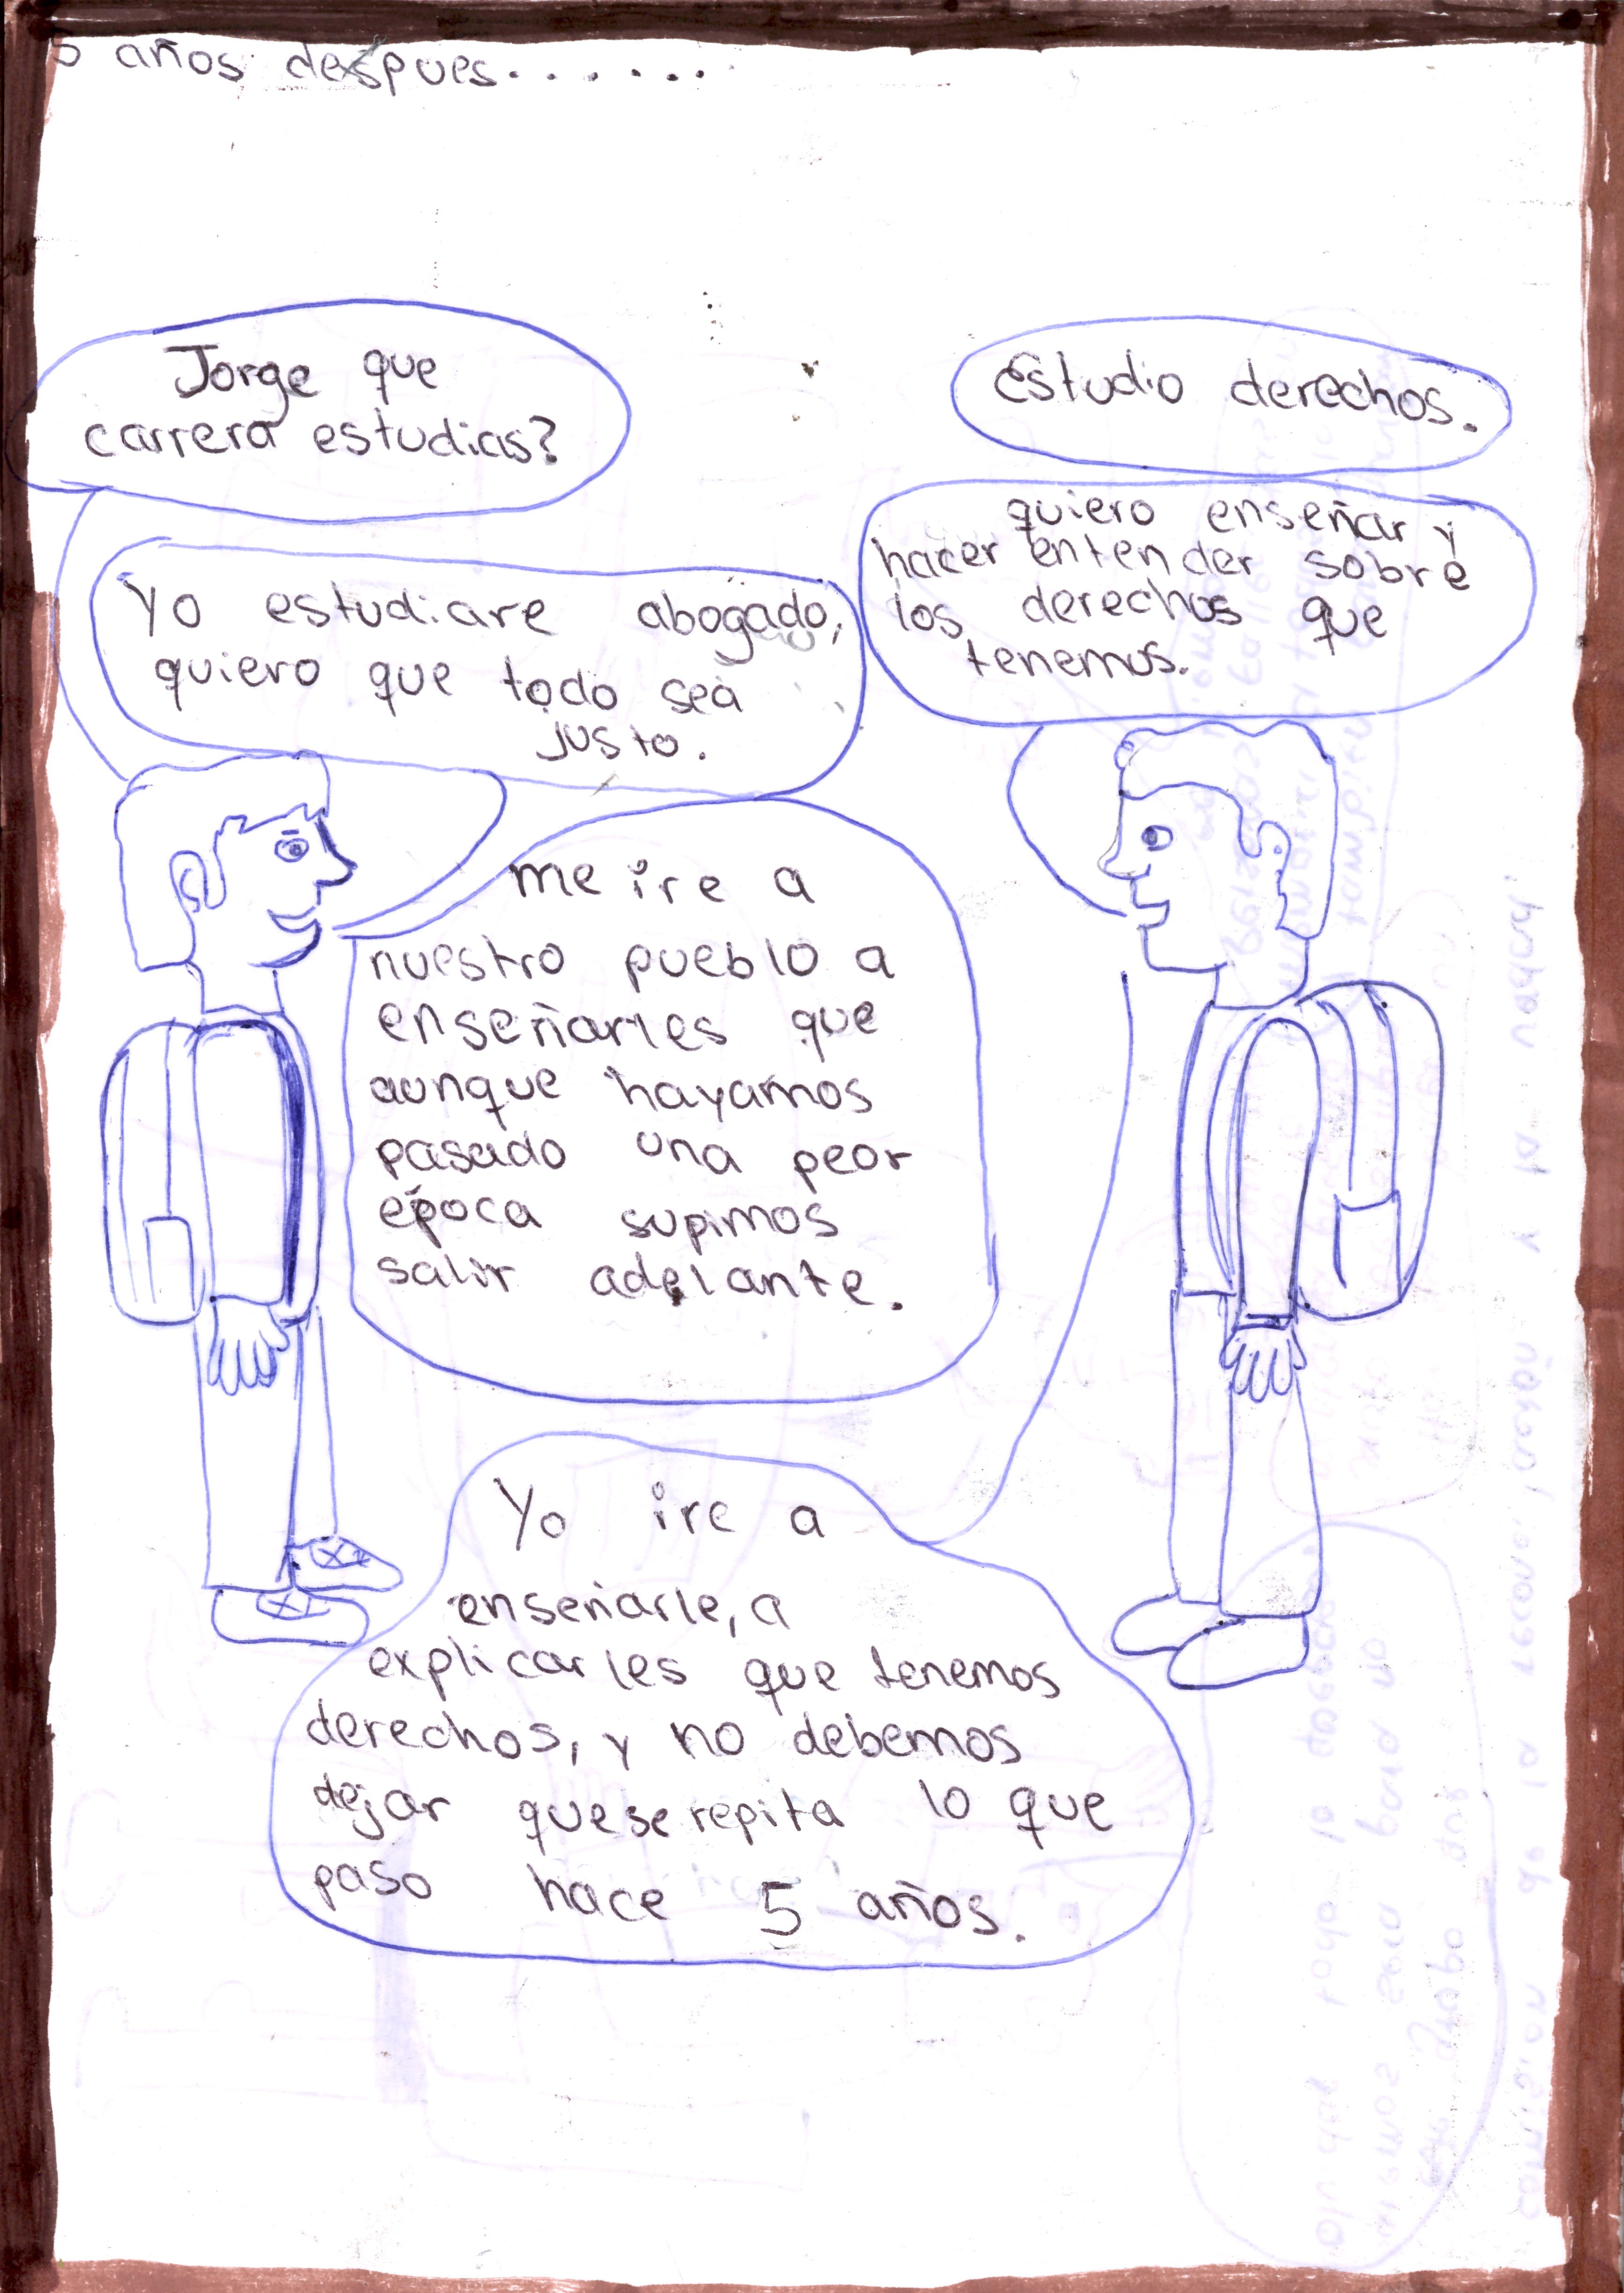 5 años despues.......
Jorge que
carrera estudias?
Estudio derechos.
quiero enseñar y
hacer entender sobre
los derechos que
tenemos.
Yo estudiare abogado,
quiero que todo sea
justo.
me ire a
nuestro pueblo a
enseñarles que
aunque hayamos
pasado una peor
época supimos
salir adelante.
Yo ire a
enseñarle, a
explicarles que tenemos
derechos, y no debemos
dejar que se repita lo que
paso hace 5 años.